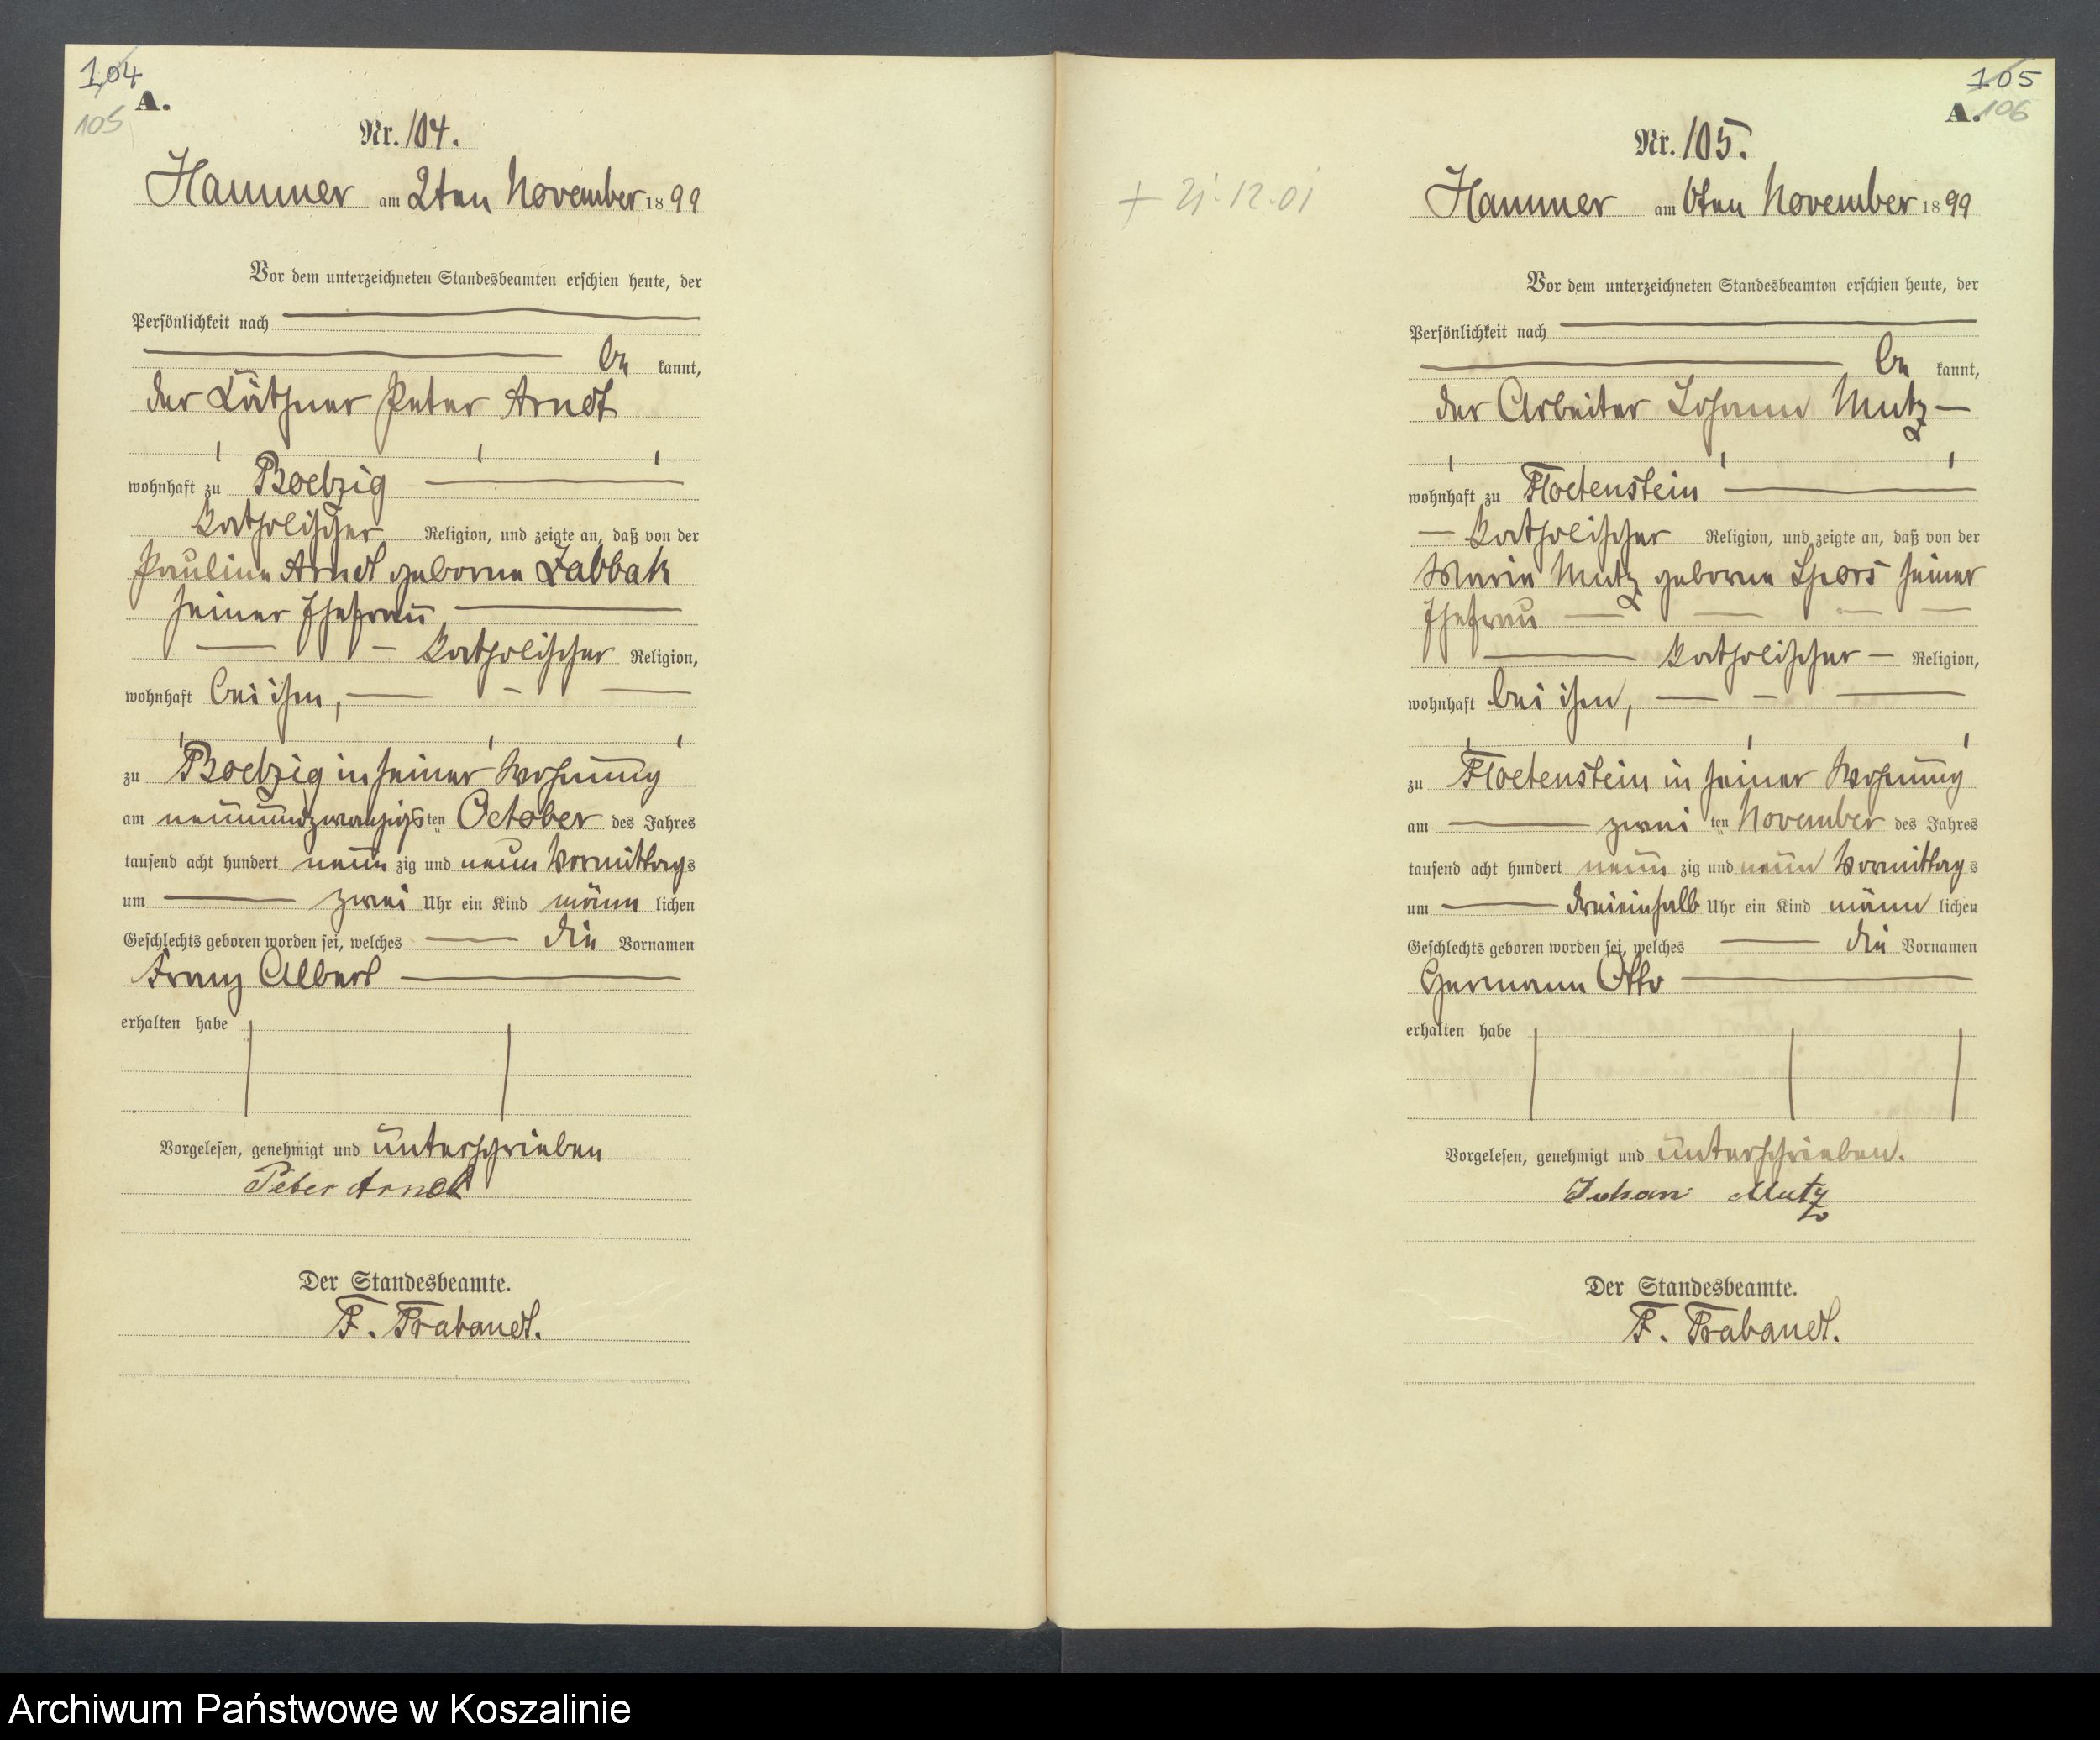 104
105
A.
Nr. 104.
Hammer am 2ten November 1899
Vor dem unterzeichneten Standesbeamten erschien heute, der
Persönlichkeit nach
be kannt,
der Käthner Peter Arndt
wohnhaft zu Boelzig
katholischer Religion, und zeigte an, daß von der
Pauline Arndt geborne Labbak
seiner Ehefrau
katholischer Religion,
wohnhaft bei ihm,
zu Boelzig in seiner Wohnung
am neunundzwanzigsten October des Jahres
tausend acht hundert neun zig und neun Vormittags
um zwei Uhr ein Kind männ lichen
Geschlechts geboren worden sei, welches die Vornamen
Franz Albert
erhalten habe
Vorgelesen, genehmigt und unterschrieben
Peter Arndt
Der Standesbeamte.
F. Trabandt.
105
A. 106
Nr. 105.
+ 21.12.01
Hammer am 6ten November 1899
Vor dem unterzeichneten Standesbeamten erschien heute, der
Persönlichkeit nach
be kannt,
der Arbeiter Johann Mutz
wohnhaft zu Floetenstein
katholischer Religion, und zeigte an, daß von der
Maria Mutz geborne Spors seiner
Ehefrau
katholischer Religion,
wohnhaft bei ihm,
zu Floetenstein in seiner Wohnung
am zwei ten November des Jahres
tausend acht hundert neun zig und neun Vormittags
um dreieinhalb Uhr ein Kind männ lichen
Geschlechts geboren worden sei, welches die Vornamen
Hermann Otto
erhalten habe
Vorgelesen, genehmigt und unterschrieben.
Johan Mutz
Der Standesbeamte.
F. Trabandt.
Archiwum Państwowe w Koszalinie